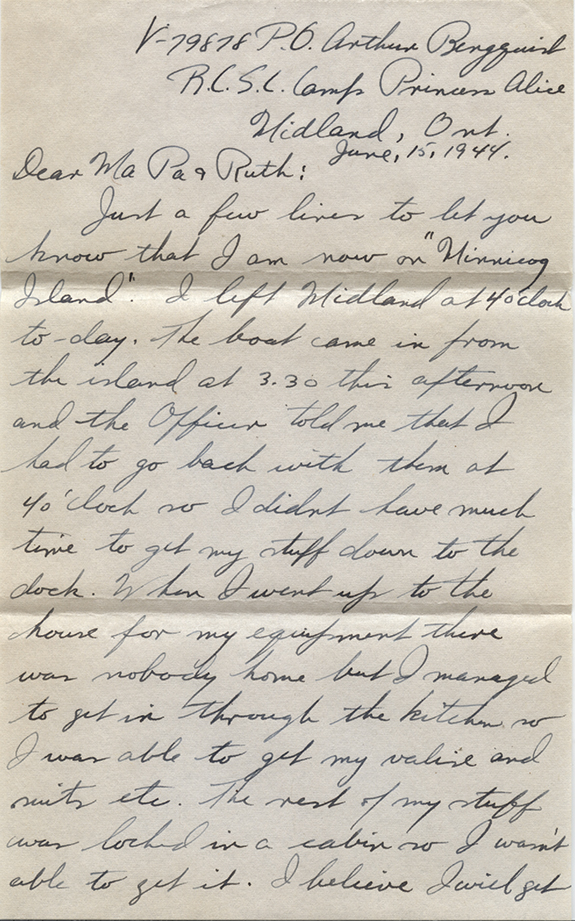 V-79878 P.O. Arthur Bergquist
R.C.S.C. Camp Princess Alice
Midland, Ont.
June, 15, 1944.
Dear Ma Pa & Ruth:
Just a few lines to let you
know that I am now on "Minnicog
Island". I left Midland at 4 o'clock
to-day. The boat came in from
the island at 3.30 this afternoon
and the Officer told me that I
had to go back with them at
4 o'clock so I didnt have much
time to get my stuff down to the
dock. When I went up to the
house for my equipment there
was nobody home but I managed
to get in through the kitchen so
I was able to get my valise and
suits etc. The rest of my stuff
was locked in a cabin so I wasn't
able to get it. I believe I will get